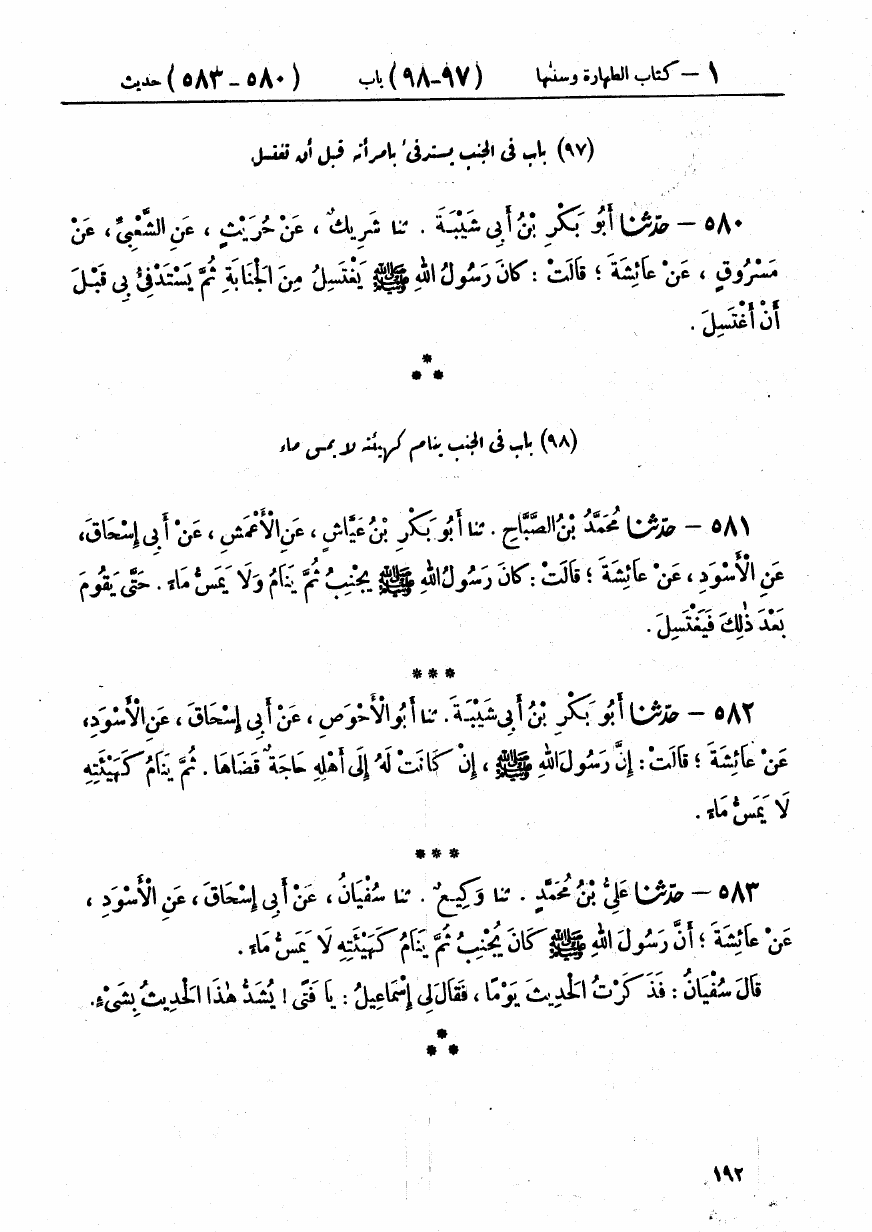 ١ – كتاب الطهارة وسننها (٩٧-٩٨) باب (٥٨٠ – ٥٨٣) حديث
(٩٧) باب فى الجنب يستدفئ بامرأته قبل أن تغتسل
٥٨٠ – حَدَّثَنَا أَبُو بَكْرِ بْنُ أَبِى شَيْبَةَ . ثنا شَرِيكٌ ، عَنْ حُرَيْثٍ ، عَنِ الشَّعْبِىِّ ، عَنْ
مَسْرُوقٍ ، عَنْ عَائِشَةَ ؛ قَالَتْ : كَانَ رَسُولُ اللهِ ﷺ يَغْتَسِلُ مِنَ الْجَنَابَةِ ثُمَّ يَسْتَدْفِئُ بِى قَبْلَ
أَنْ أَغْتَسِلَ .
*
* *
(٩٨) باب فى الجنب ينام كهيئته لا يمس ماء
٥٨١ – حَدَّثَنَا مُحَمَّدُ بْنُ الصَّبَّاحِ . ثنا أَبُو بَكْرِ بْنُ عَيَّاشٍ ، عَنِ الْأَعْمَشِ ، عَنْ أَبِى إِسْحَاقَ،
عَنِ الْأَسْوَدِ ، عَنْ عَائِشَةَ ؛ قَالَتْ : كَانَ رَسُولُ اللهِ ﷺ يُجْنِبُ ثُمَّ يَنَامُ وَلَا يَمَسُّ مَاءً . حَتَّى يَقُومَ
بَعْدَ ذٰلِكَ فَيَغْتَسِلَ .
* * *
٥٨٢ – حَدَّثَنَا أَبُو بَكْرِ بْنُ أَبِى شَيْبَةَ . ثنا أَبُو الْأَحْوَصِ ، عَنْ أَبِى إِسْحَاقَ ، عَنِ الْأَسْوَدِ،
عَنْ عَائِشَةَ ؛ قَالَتْ : إِنَّ رَسُولَ اللهِ ﷺ ، إِنْ كَانَتْ لَهُ إِلَى أَهْلِهِ حَاجَةٌ قَضَاهَا . ثُمَّ يَنَامُ كَهَيْئَتِهِ
لَا يَمَسُّ مَاءً .
* * *
٥٨٣ – حَدَّثَنَا عَلِىُّ بْنُ مُحَمَّدٍ . ثنا وَكِيعٌ . ثنا سُفْيَانُ ، عَنْ أَبِى إِسْحَاقَ ، عَنِ الْأَسْوَدِ ،
عَنْ عَائِشَةَ ؛ أَنَّ رَسُولَ اللهِ ﷺ كَانَ يُجْنِبُ ثُمَّ يَنَامُ كَهَيْئَتِهِ لَا يَمَسُّ مَاءً .
قَالَ سُفْيَانُ : فَذَكَرْتُ الْحَدِيثَ يَوْمًا ، فَقَالَ لِى إِسْمَاعِيلُ : يَا فَتَى ! يُشَدُّ هٰذَا الْحَدِيثُ بِشَىْءٍ .
*
* *
١٩٢